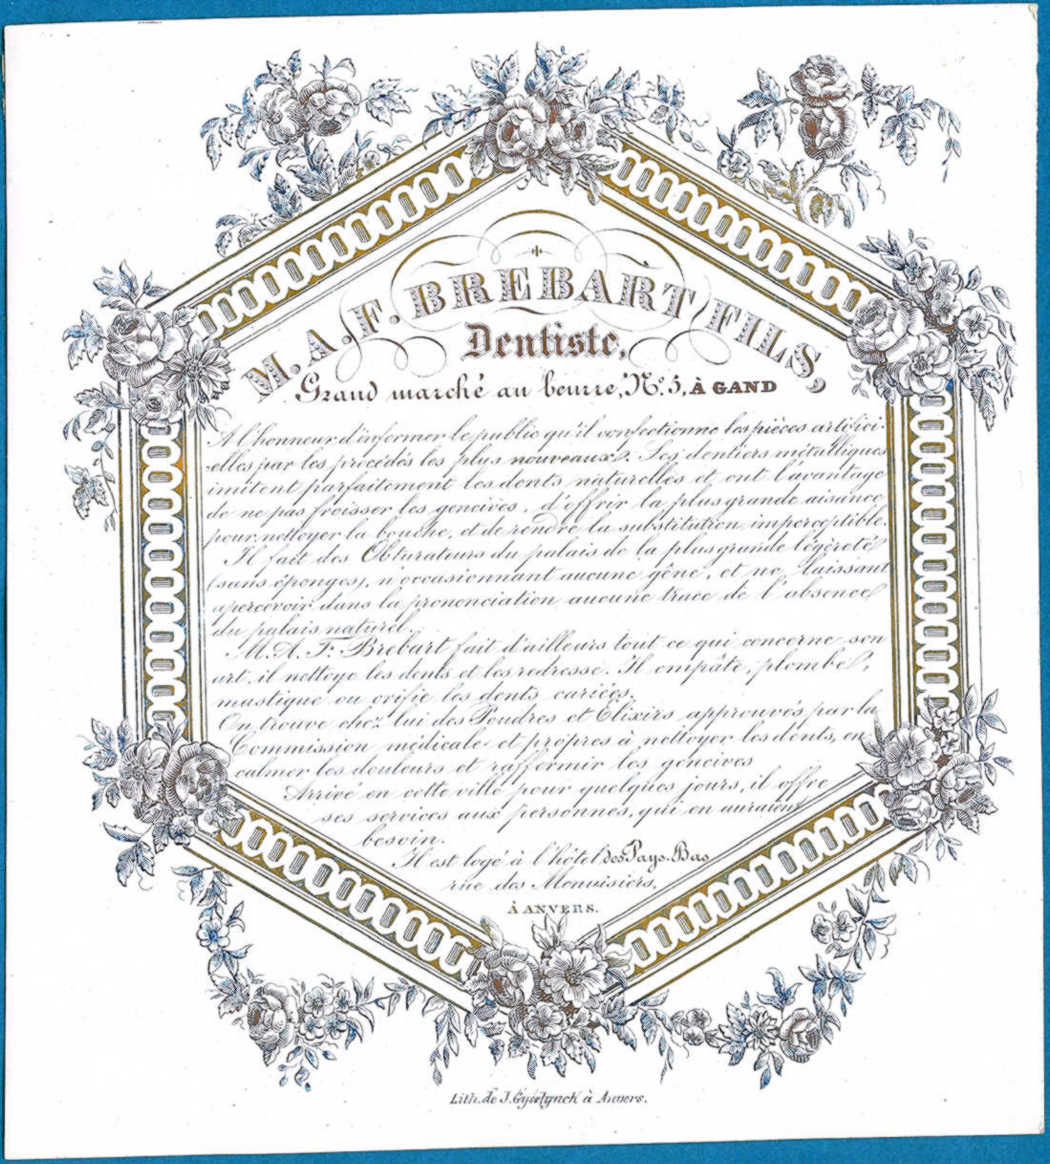 M. A. F. BREBART FILS,
Dentiste,
Grand marché au beurre, N.º 5, À GAND
A l'honneur d'informer le public qu'il confectionne les pièces artifici-
elles par les procédés les plus nouveaux. Ses dentiers métalliques
imitent parfaitement les dents naturelles et ont l'avantage
de ne pas froisser les gencives, d'offrir la plus grande aisance
pour nettoyer la bouche, et de rendre la substitution imperceptible.
Il fait des Obturateurs du palais de la plus grande légèreté
(sans éponges), n'occasionnant aucune gêne, et ne laissant
apercevoir dans la prononciation aucune trace de l'absence
du palais naturel.
M. A. F. Brebart fait d'ailleurs tout ce qui concerne son
art, il nettoye les dents et les redresse. Il empâte, plombe,
mastique ou orifie les dents cariées.
On trouve chez lui des Poudres et Elixirs approuvés par la
Commission médicale et propres à nettoyer les dents, en
calmer les douleurs et raffermir les gencives
Arrivé en cette ville pour quelques jours, il offre
ses services aux personnes, qui en auraient
besoin.
Il est logé à l'hôtel des Pays-Bas
rue des Menuisiers,
À ANVERS.
Lith. de J. Gyselynck à Anvers.